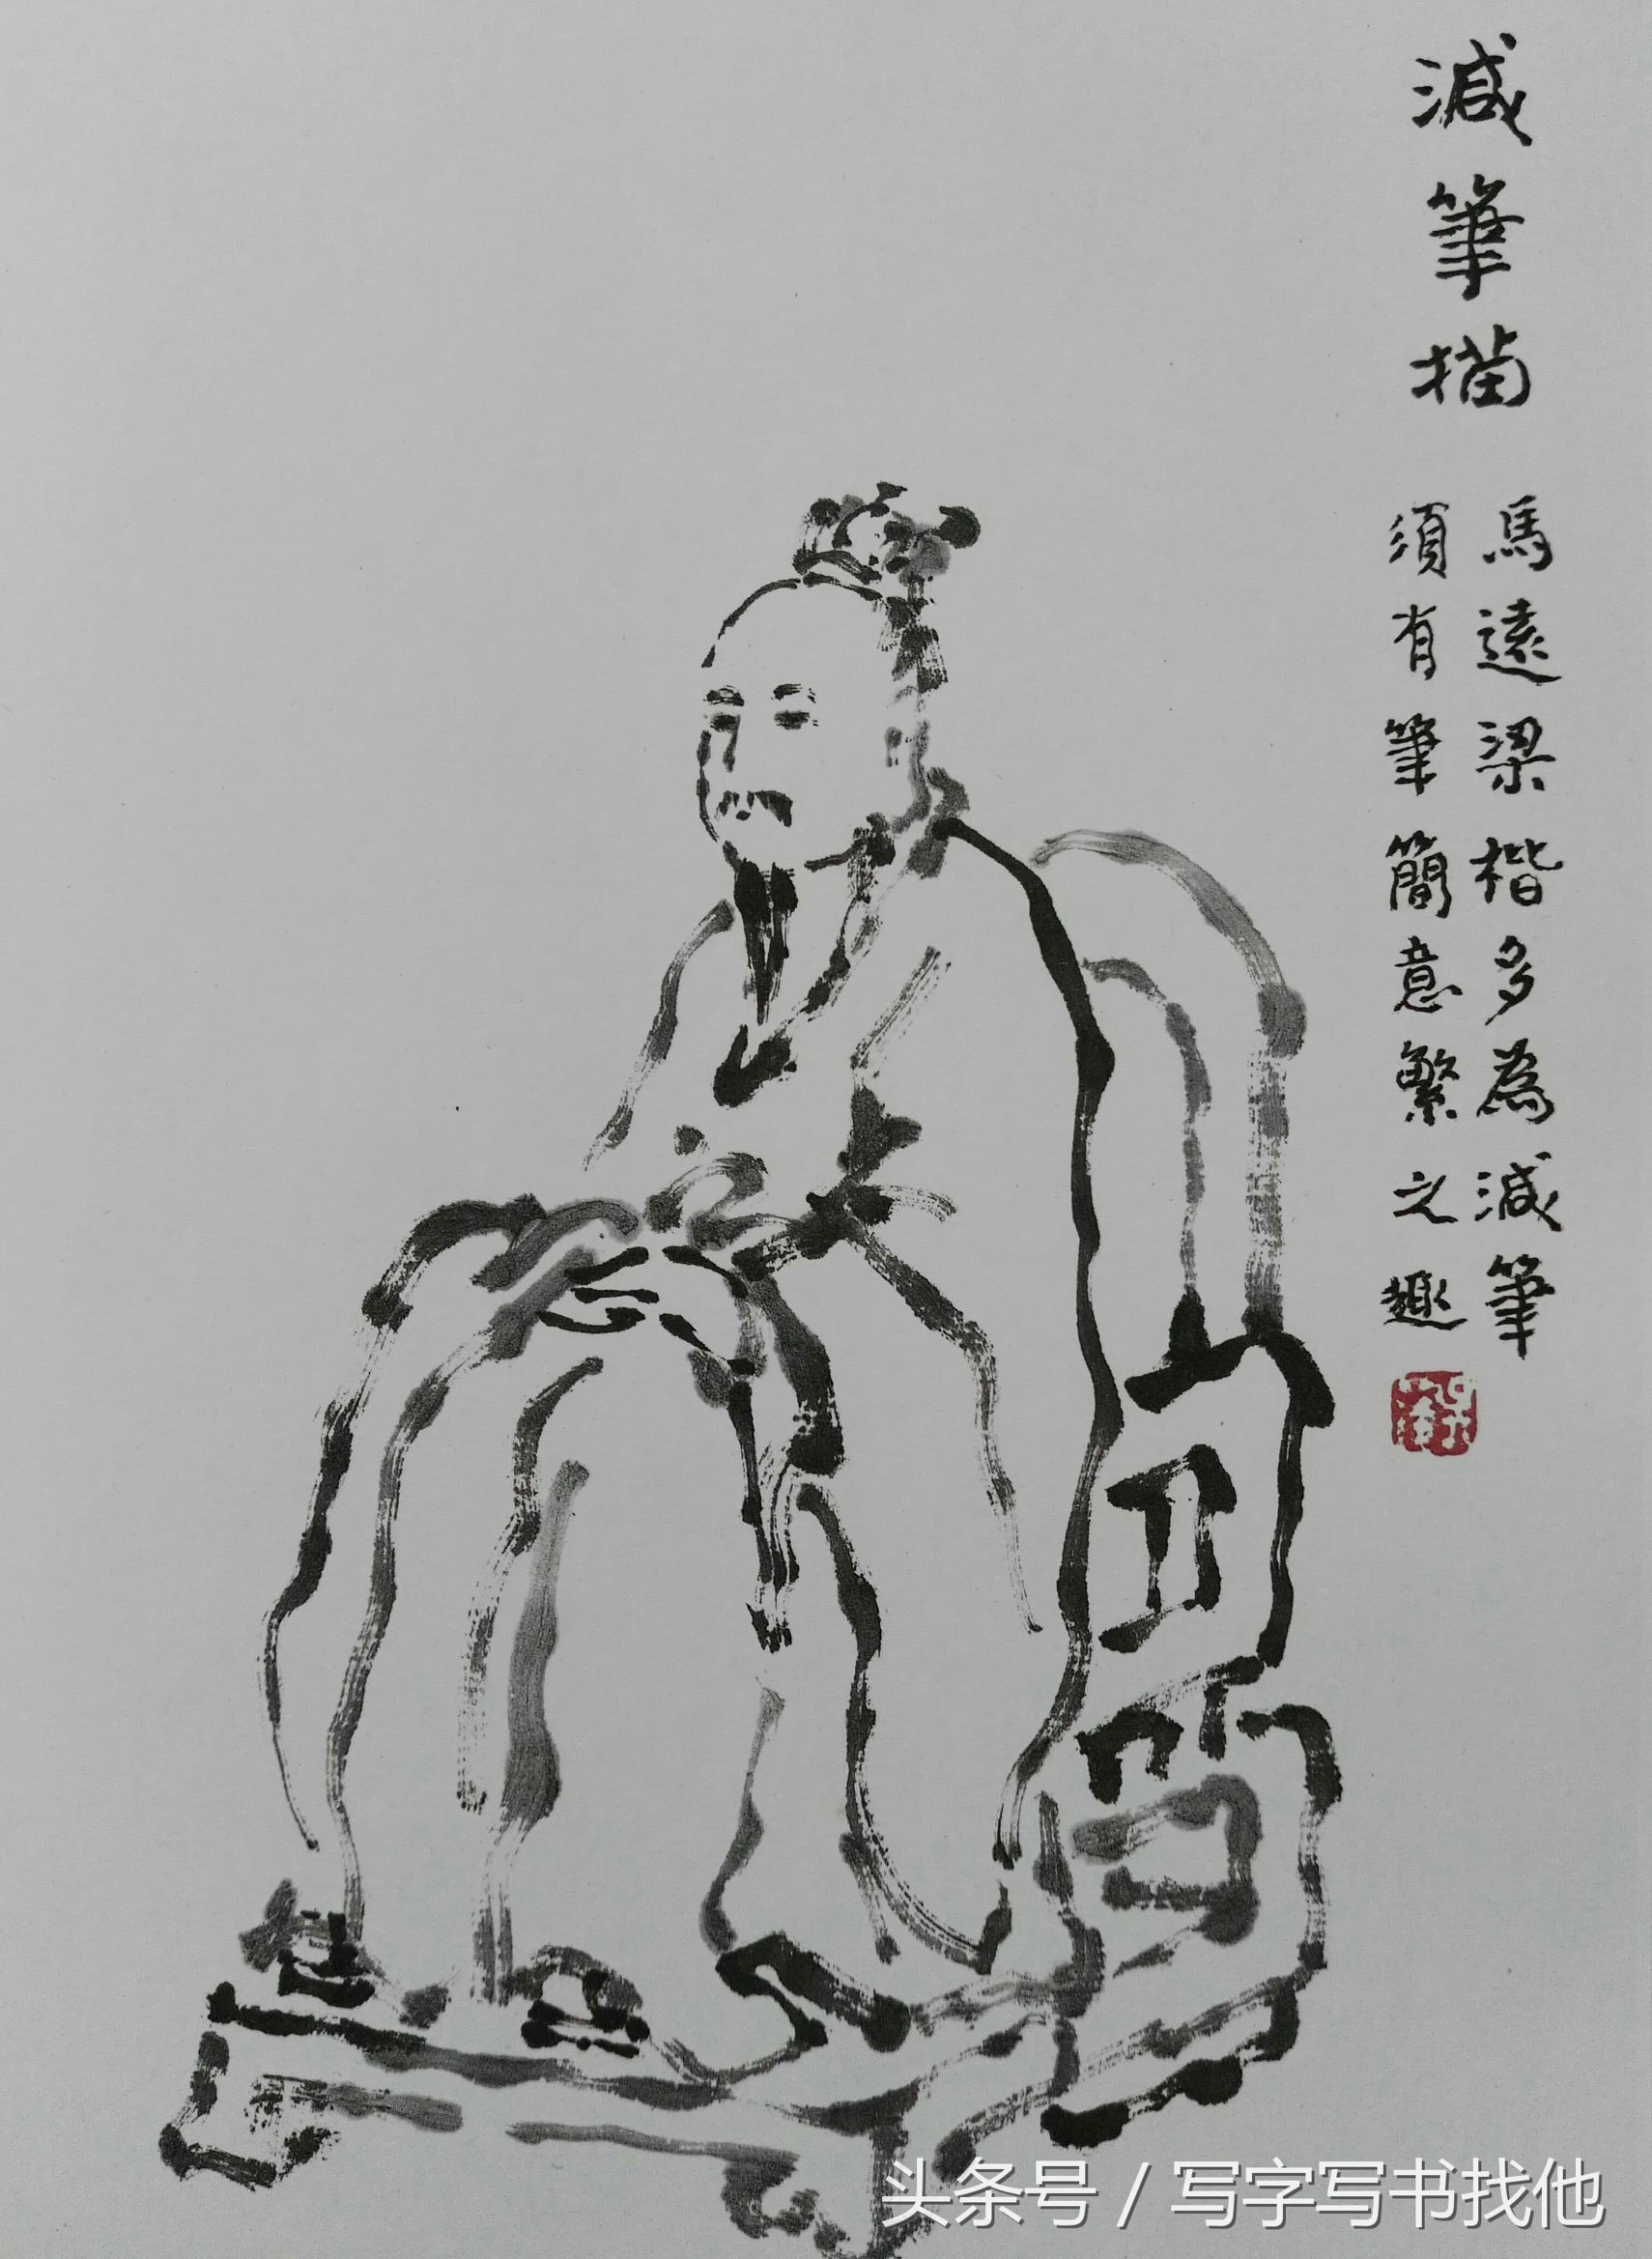 減筆描
馬遠梁楷多為減筆
須有筆簡意繁之趣
头条号 / 写字写书找他